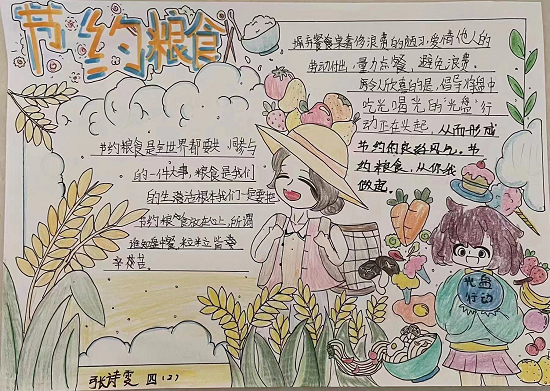 节约粮食
节约粮食是全世界都要共同参与
的一件大事,粮食是我们
的生活根本我们一定要把
节约粮食放在心上,所谓
谁知盘中餐,粒粒皆辛
辛苦。
摒弃餐餐桌奢侈浪费的陋习,爱惜他人的
劳动付出,量力点餐,避免浪费。
令人欣喜的是,倡导将盘中
吃光喝光的"光盘"行
动正在头起,从而形成
节约的良好风气。节
约粮食,从你我
做起。
光盘
行动
张诗雯 四(2)